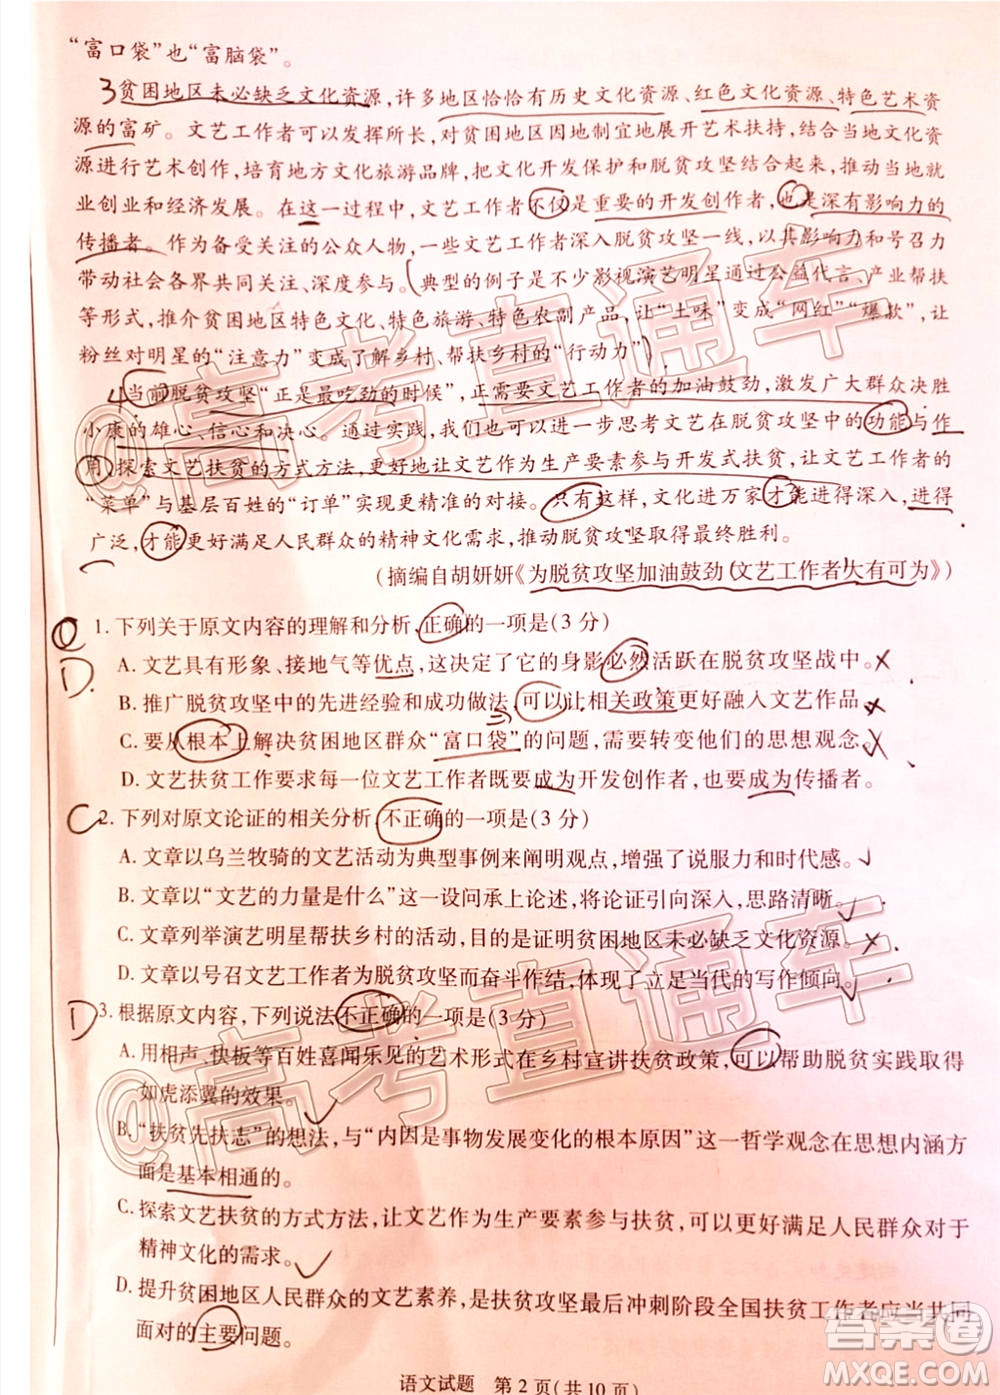 “富口袋”也“富脑袋”。
3贫困地区未必缺乏文化资源,许多地区恰恰有历史文化资源、红色文化资源、特色艺术资
源的富矿。文艺工作者可以发挥所长,对贫困地区因地制宜地展开艺术扶持,结合当地文化资
源进行艺术创作,培育地方文化旅游品牌,把文化开发保护和脱贫攻坚结合起来,推动当地就
业创业和经济发展。在这一过程中,文艺工作者不仅是重要的开发创作者,也是深有影响力的
传播者。作为备受关注的公众人物,一些文艺工作者深入脱贫攻坚一线,以其影响力和号召力
带动社会各界共同关注、深度参与。典型的例子是不少影视演艺明星通过公益代言、产业帮扶
等形式,推介贫困地区特色文化、特色旅游、特色农副产品,让“土味”变成“网红”“爆款”,让
粉丝对明星的“注意力”变成了解乡村、帮扶乡村的“行动力”
4当前脱贫攻坚“正是最吃劲的时候”,正需要文艺工作者的加油鼓劲,激发广大群众决胜
小康的雄心、信心和决心。通过实践,我们也可以进一步思考文艺在脱贫攻坚中的功能与作
用,探索文艺扶贫的方式方法,更好地让文艺作为生产要素参与开发式扶贫,让文艺工作者的
“菜单”与基层百姓的“订单”实现更精准的对接。只有这样,文化进万家才能进得深入,进得
广泛,才能更好满足人民群众的精神文化需求,推动脱贫攻坚取得最终胜利。
(摘编自胡妍妍《为脱贫攻坚加油鼓劲 文艺工作者大有可为》)
1. 下列关于原文内容的理解和分析,正确的一项是(3 分)
D.
A. 文艺具有形象、接地气等优点,这决定了它的身影必然活跃在脱贫攻坚战中。
B. 推广脱贫攻坚中的先进经验和成功做法,可以让相关政策更好融入文艺作品
C. 要从根本上解决贫困地区群众“富口袋”的问题,需要转变他们的思想观念
D. 文艺扶贫工作要求每一位文艺工作者既要成为开发创作者,也要成为传播者。
C 2. 下列对原文论证的相关分析,不正确的一项是(3 分)
A. 文章以乌兰牧骑的文艺活动为典型事例来阐明观点,增强了说服力和时代感。
B. 文章以“文艺的力量是什么”这一设问承上论述,将论证引向深入,思路清晰。
C. 文章列举演艺明星帮扶乡村的活动,目的是证明贫困地区未必缺乏文化资源。
D. 文章以号召文艺工作者为脱贫攻坚而奋斗作结,体现了立足当代的写作倾向。
D 3. 根据原文内容,下列说法不正确的一项是(3 分)
A. 用相声、快板等百姓喜闻乐见的艺术形式在乡村宣讲扶贫政策,可以帮助脱贫实践取得
如虎添翼的效果。
B. “扶贫先扶志”的想法,与“内因是事物发展变化的根本原因”这一哲学观念在思想内涵方
面是基本相通的。
C. 探索文艺扶贫的方式方法,让文艺作为生产要素参与扶贫,可以更好满足人民群众对于
精神文化的需求。
D. 提升贫困地区人民群众的文艺素养,是扶贫攻坚最后冲刺阶段全国扶贫工作者应当共同
面对的主要问题。
语文试题 第 2 页(共 10 页)
@高考直通车
@高考直通车
答案圈
MXQE.COM